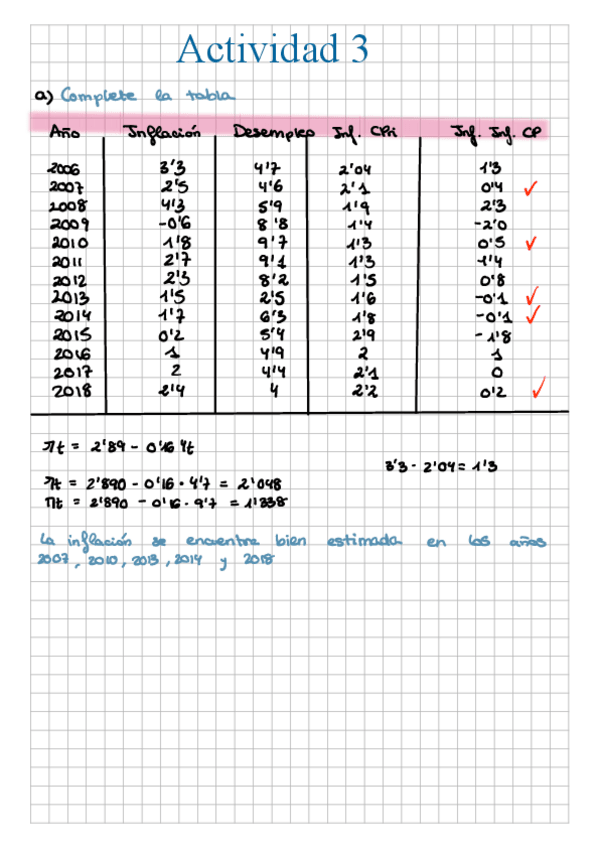 Actividad 3
a) Complete la tabla
Año Inflación Desempleo Inf. CPi Inf. Inf. CP
2006 3'3 4'7 2'04 1'3
2007 2'5 4'6 2'1 0'4 ✓
2008 4'3 5'9 1'9 2'3
2009 -0'6 8'8 1'4 -2'0
2010 1'8 9'7 1'3 0'5 ✓
2011 2'7 9'1 1'3 -1'4
2012 2'3 8'2 1'5 0'8
2013 1'5 2'5 1'6 -0'1 ✓
2014 1'7 6'3 1'8 -0'1 ✓
2015 0'2 5'4 2'9 -1'8
2016 1 4'9 2 1
2017 2 4'4 2'1 0
2018 2'4 4 2'2 0'2 ✓
πt = 2'89 - 0'16 4t
3'3 - 2'04 = 1'3
πt = 2'890 - 0'16 · 4'7 = 2'048
πt = 2'890 - 0'16 · 9'7 = 1'338
La inflación se encuentra bien estimada en los años
2007, 2010, 2013, 2014 y 2018